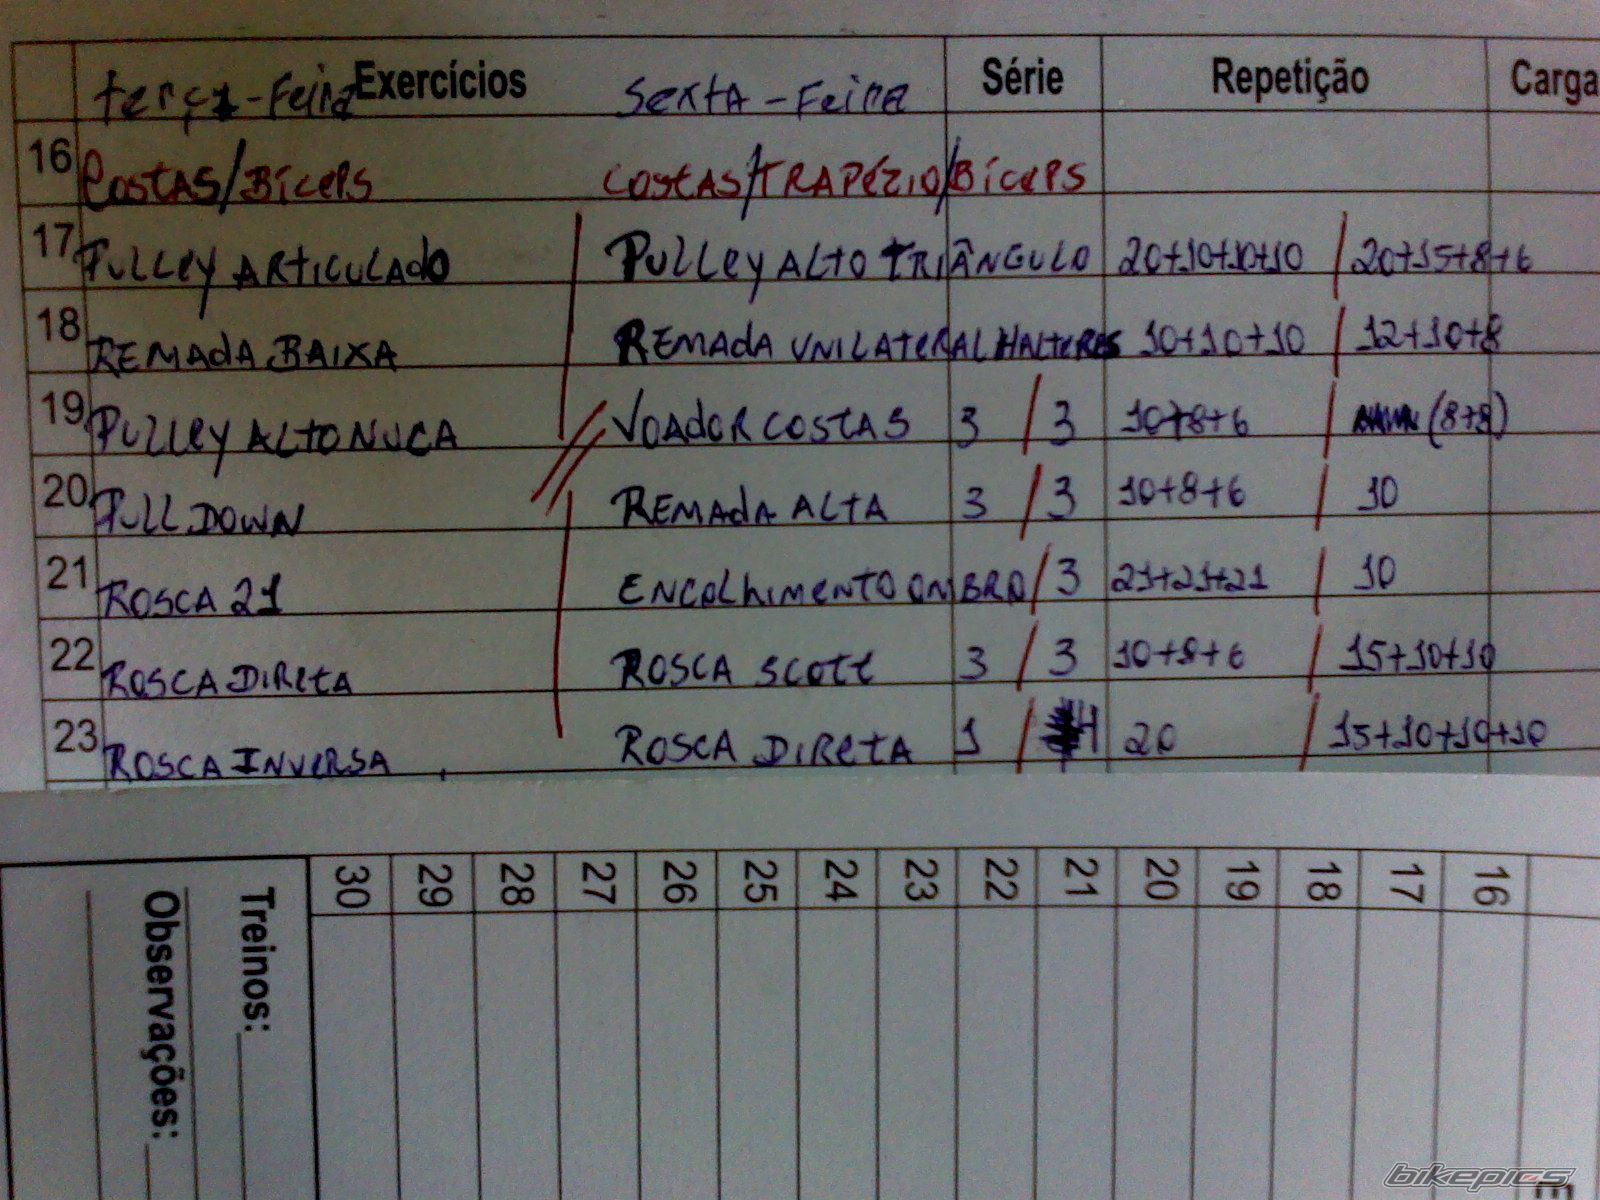 terça-Feira Exercícios Sexta-Feira Série Repetição Carga
16 Costas/Bíceps Costas/Trapézio/Bíceps
17 Pulley Articulado Pulley Alto Triângulo 20+10+10+10 / 20+15+8+6
18 Remada Baixa Remada Unilateral Halteres 10+10+10 / 12+10+8
19 Pulley Alto Nuca // Voador Costas 3 / 3 10+8+6 / (8+8)
20 Pull Down Remada Alta 3 / 3 10+8+6 / 10
21 Rosca 21 Encolhimento Ombro / 3 21+21+21 / 10
22 Rosca Direta Rosca Scott 3 / 3 10+8+6 / 15+10+10
23 Rosca Inversa Rosca Direta 1 / 4 20 / 15+10+10+10
30 29 28 27 26 25 24 23 22 21 20 19 18 17 16
Treinos:
Observações:
bikepics